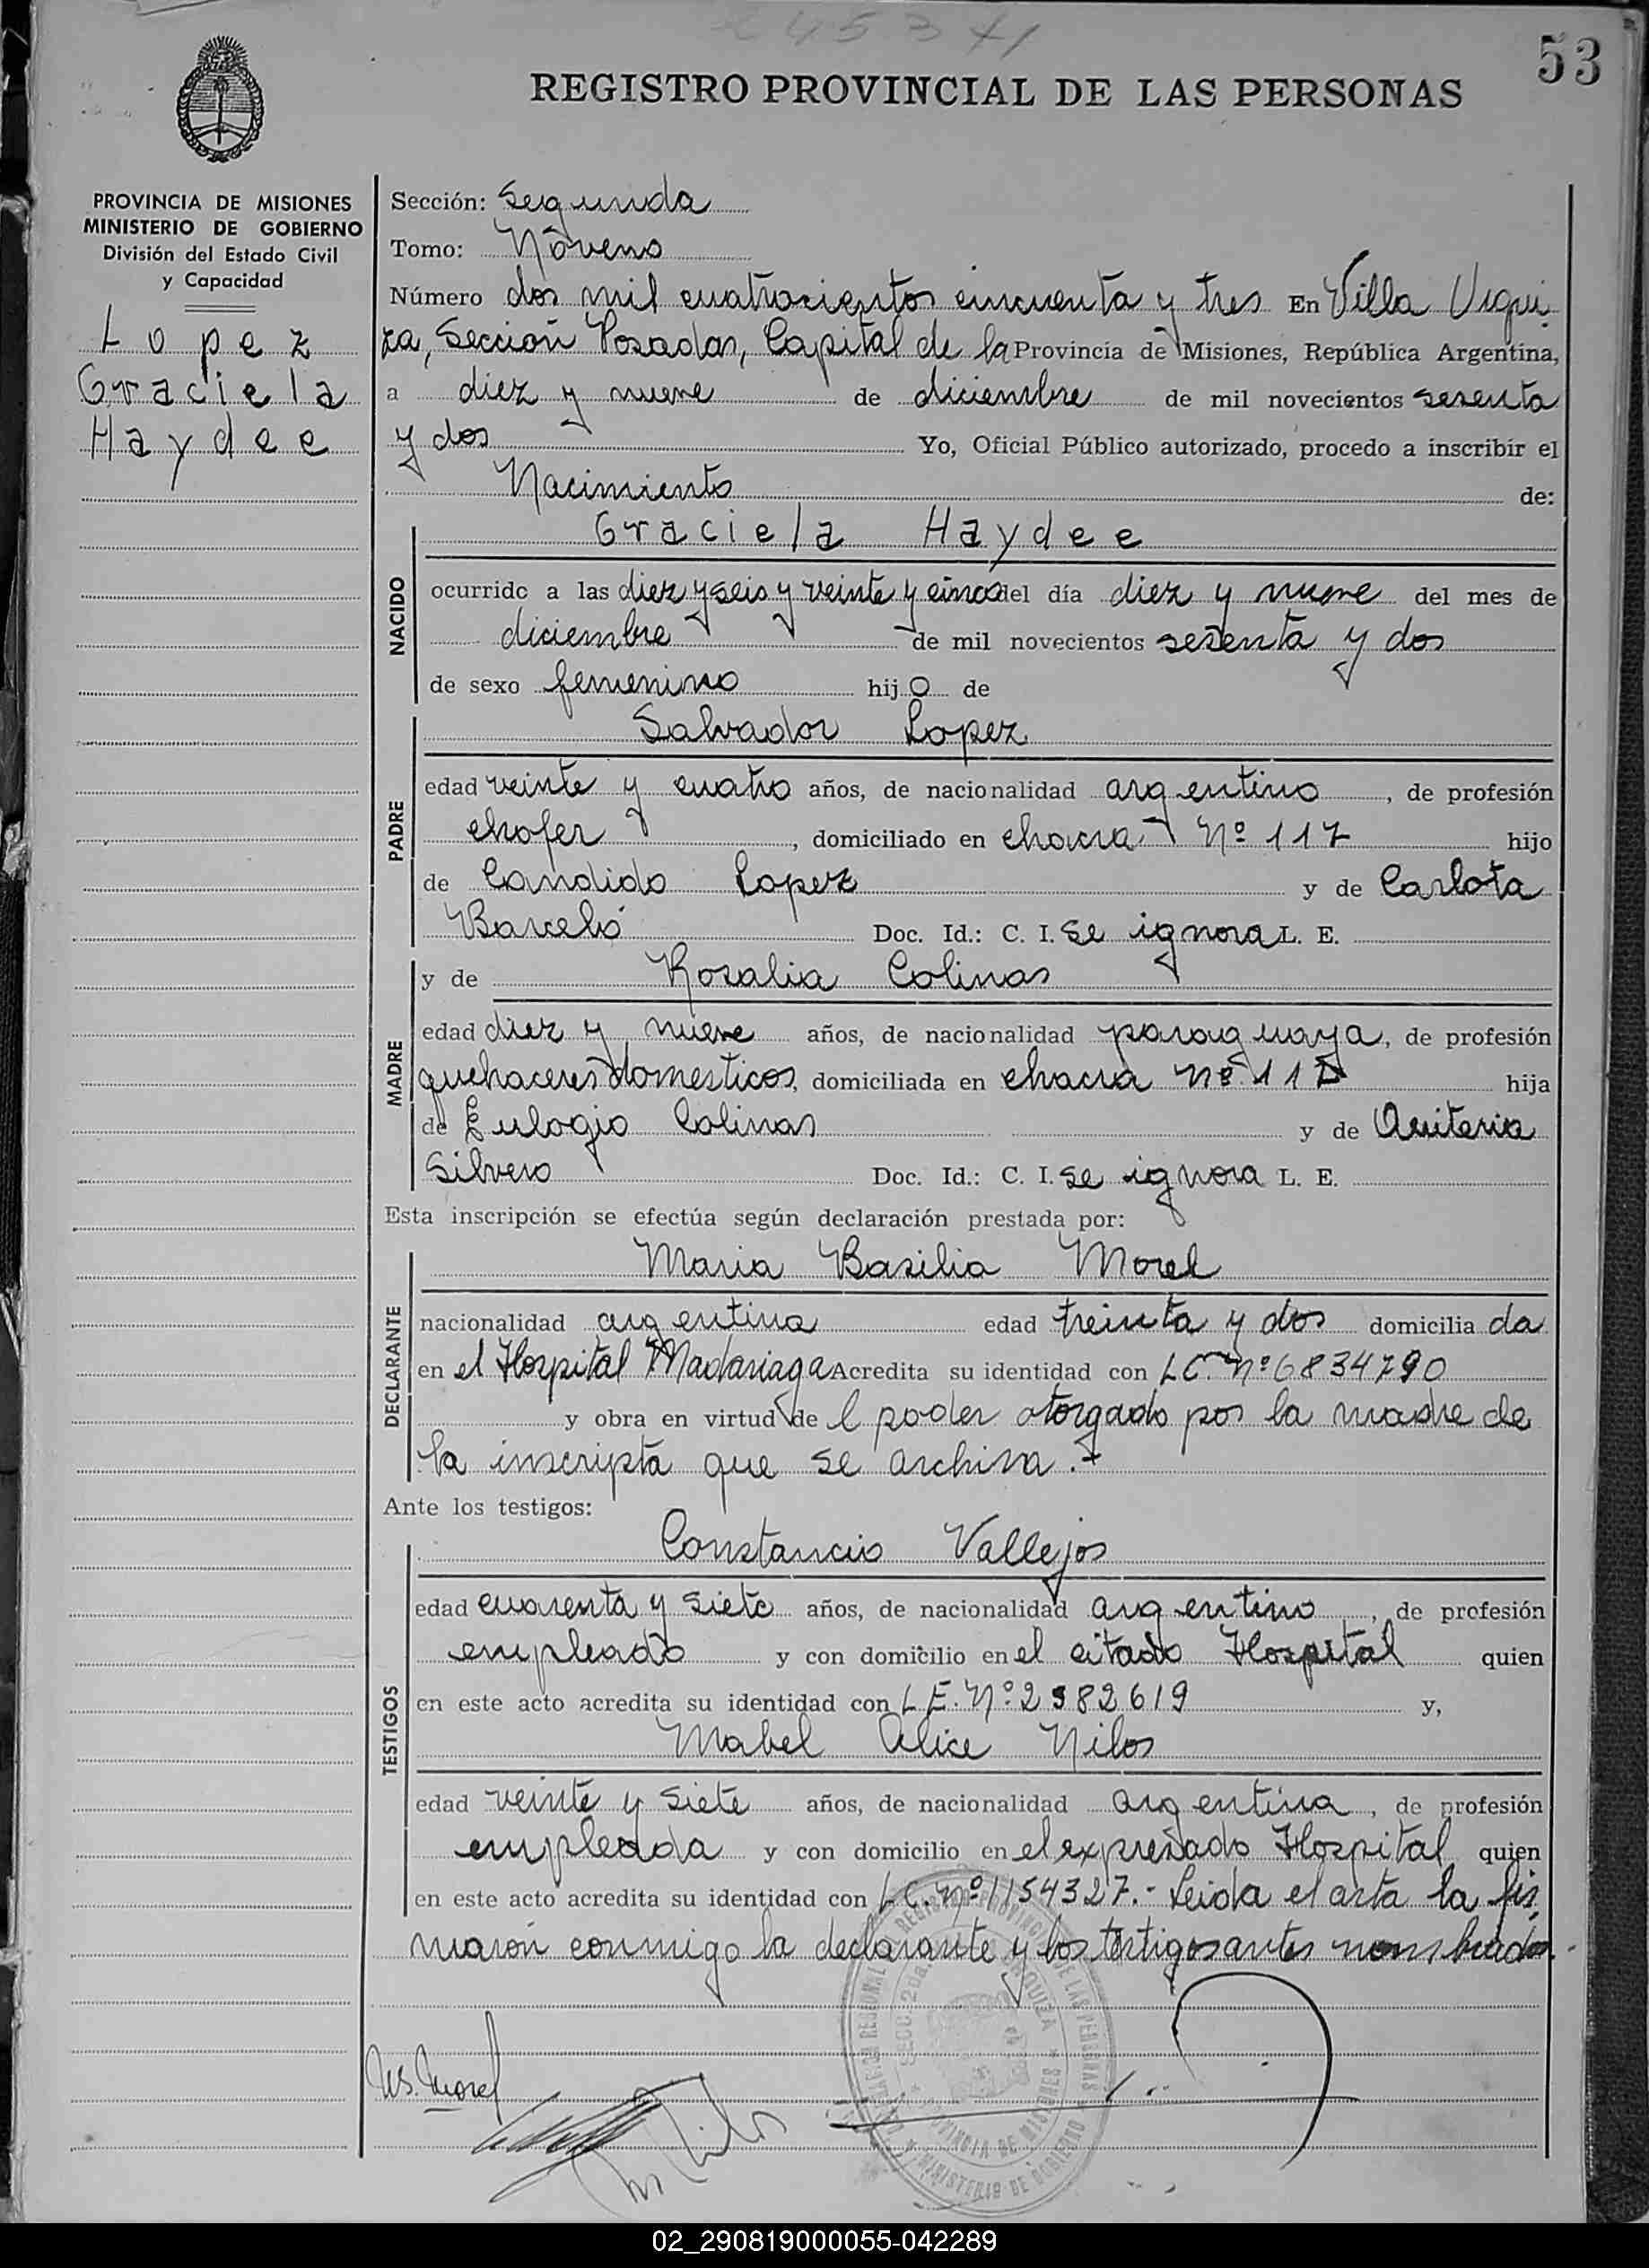 2453 71
53
REGISTRO PROVINCIAL DE LAS PERSONAS
PROVINCIA DE MISIONES
MINISTERIO DE GOBIERNO
División del Estado Civil
y Capacidad
Lopez
Graciela
Haydee
Sección: Segunda
Tomo: Noveno
Número dos mil cuatrocientos cincuenta y tres En Villa Urqui-
za, Sección Posadas, Capital de la Provincia de Misiones, República Argentina,
a diez y nueve de diciembre de mil novecientos sesenta
y dos Yo, Oficial Público autorizado, procedo a inscribir el
Nacimiento de:
NACIDO
Graciela Haydee
ocurrido a las diez y seis y veinte y cinco del día diez y nueve del mes de
diciembre de mil novecientos sesenta y dos
de sexo femenino hijo de
PADRE
Salvador Lopez
edad veinte y cuatro años, de nacionalidad argentino, de profesión
chofer, domiciliado en chacra Nº 117 hijo
de Candido Lopez y de Carlota
Barceló Doc. Id.: C. I. se ignora L. E.
MADRE
y de Rosalia Colinas
edad diez y nueve años, de nacionalidad paraguaya, de profesión
quehaceres domesticos, domiciliada en chacra nº 117 hija
de Eulogio Colinas y de Quiteria
Silvero Doc. Id.: C. I. se ignora L. E.
Esta inscripción se efectúa según declaración prestada por:
DECLARANTE
Maria Basilia Morel
nacionalidad argentina edad treinta y dos domiciliada
en el Hospital Madariaga Acredita su identidad con L.C. Nº 6834790
y obra en virtud del poder otorgado por la madre de
la inscripta que se archiva.-
Ante los testigos:
TESTIGOS
Constancio Vallejos
edad cuarenta y siete años, de nacionalidad argentino, de profesión
empleado y con domicilio en el citado Hospital quien
en este acto acredita su identidad con L.E. Nº 2582619 y,
Mabel Alice Nilos
edad veinte y siete años, de nacionalidad argentina, de profesión
empleada y con domicilio en el expresado Hospital quien
en este acto acredita su identidad con L.C. Nº 1154327.- Leida el acta la fir-
maron conmigo la declarante y los testigos antes nombrados.-
SECC. 2da.
PROVINCIA DE MISIONES
MINISTERIO DE GOBIERNO
Morel
02_290819000055-042289